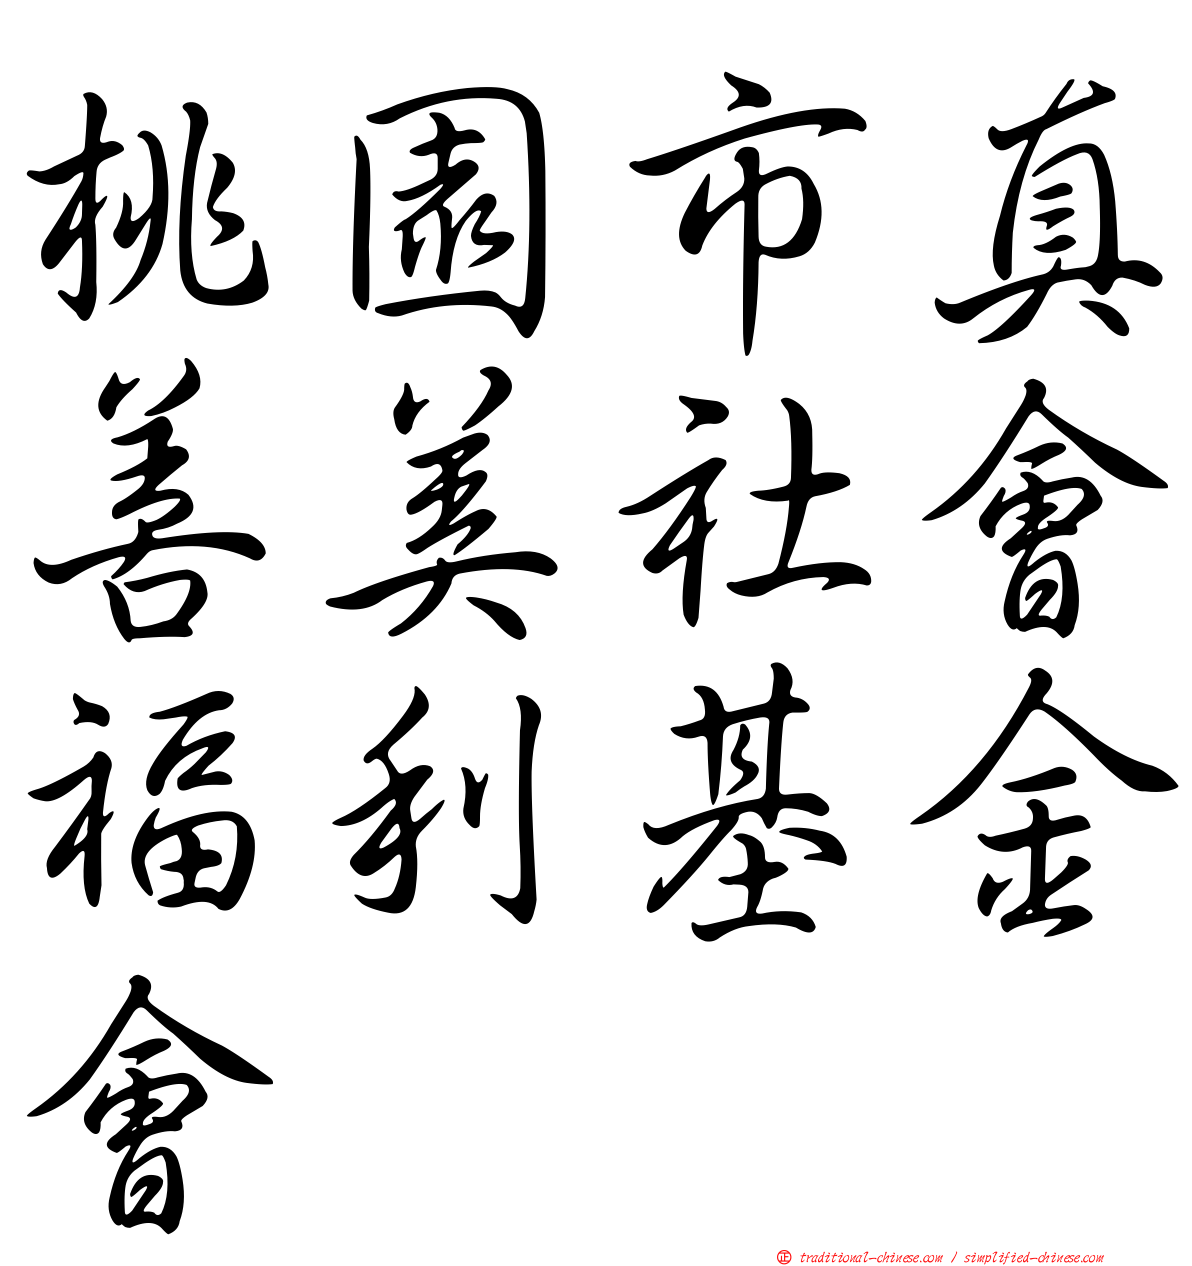 桃園市真
善美社會
福利基金
會
正 traditional-chinese.com / simplified-chinese.com